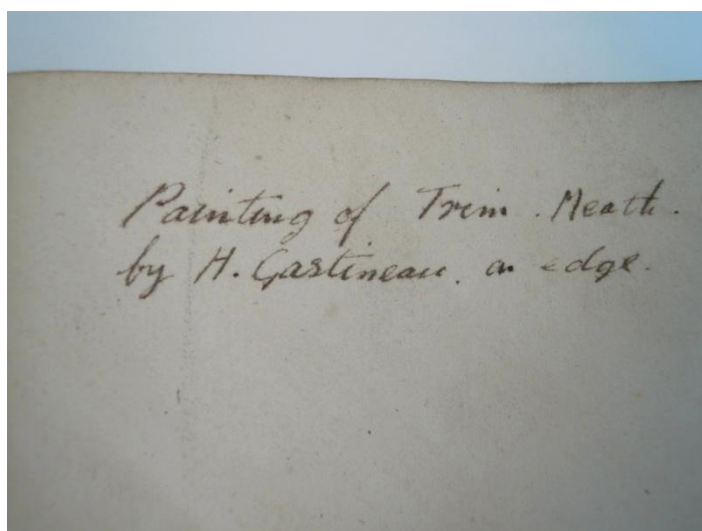 Painting of Trim. Meath.
by H. Gastineau. on edge.